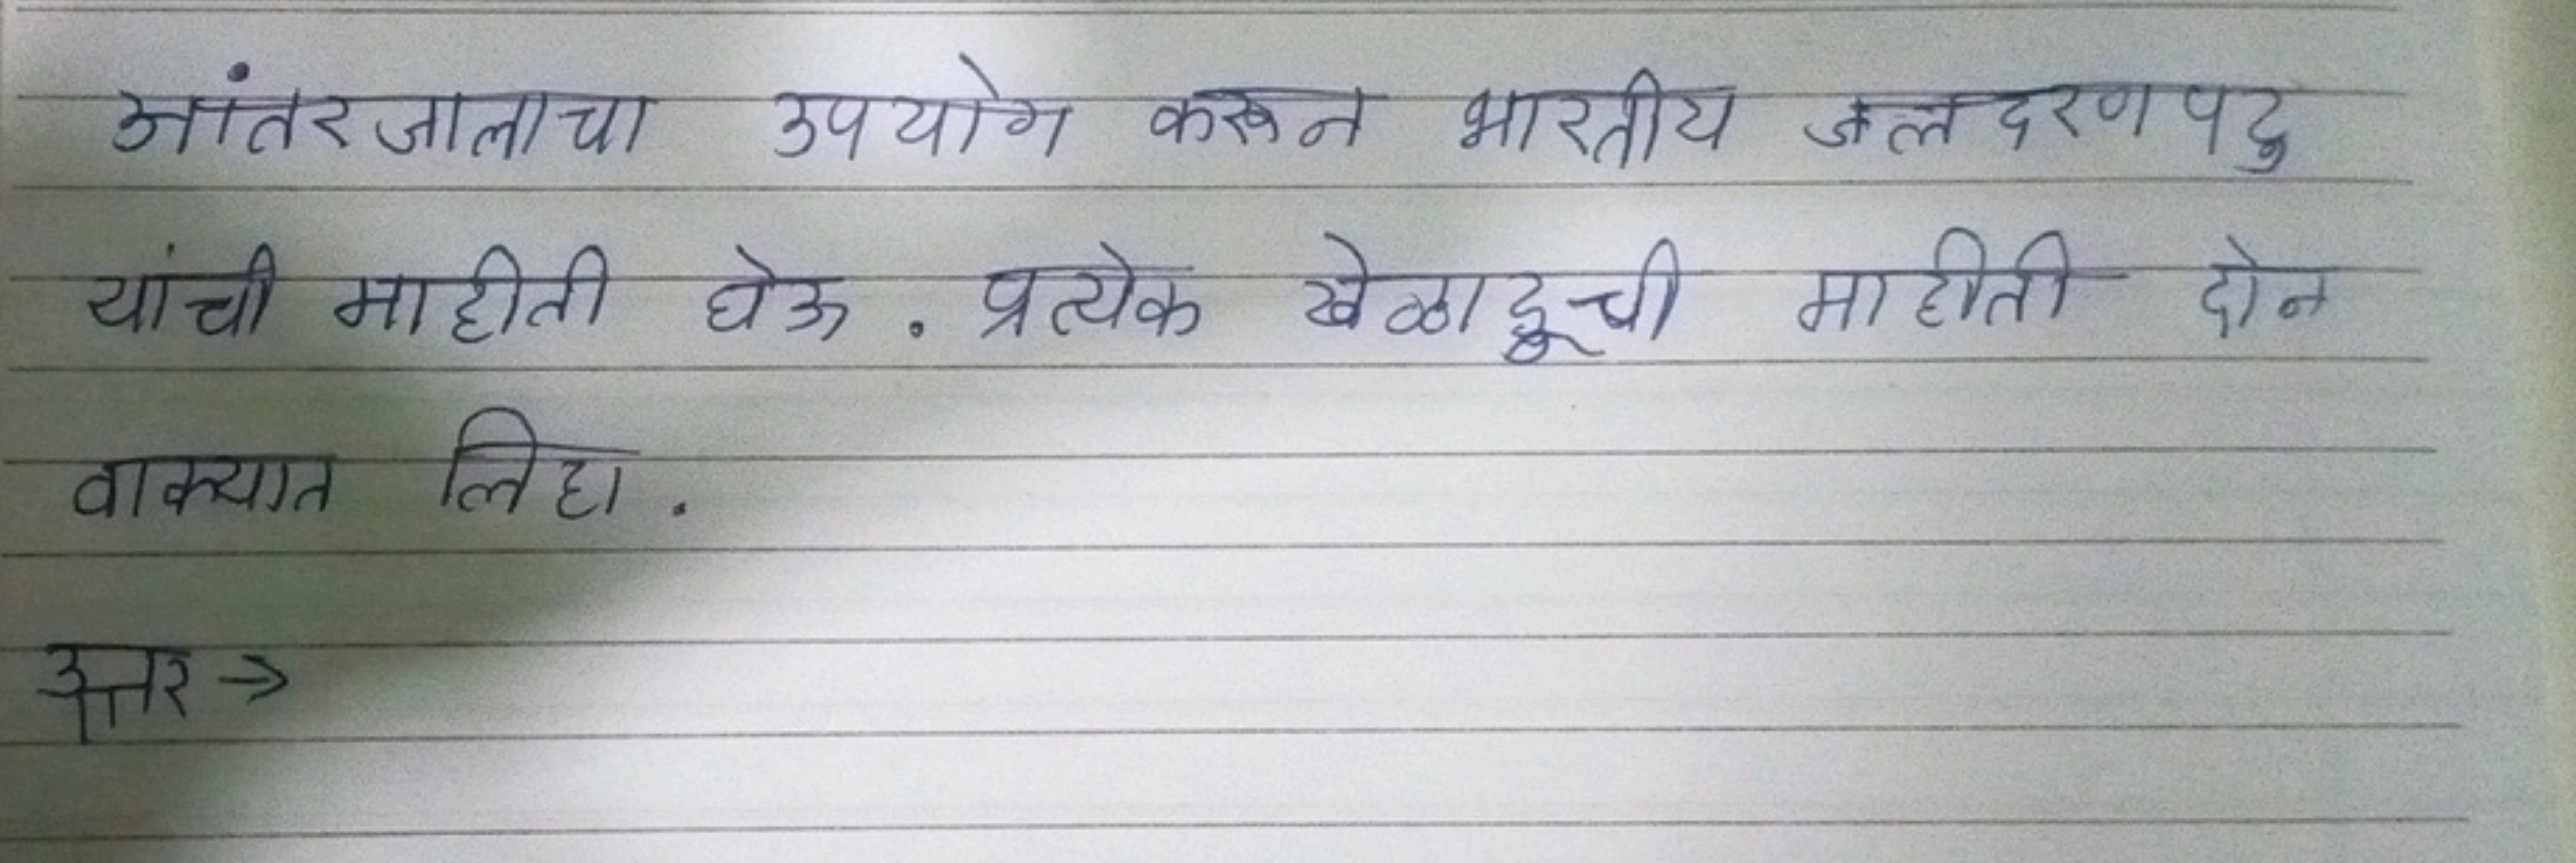 आंतरजालाचा उपयोग करून भारतीय जलदरणपटु
यांची माहीती घेऊ. प्रत्येक खेळाडूची माहीती दोन
वाक्यात लिहा.
उत्तर →